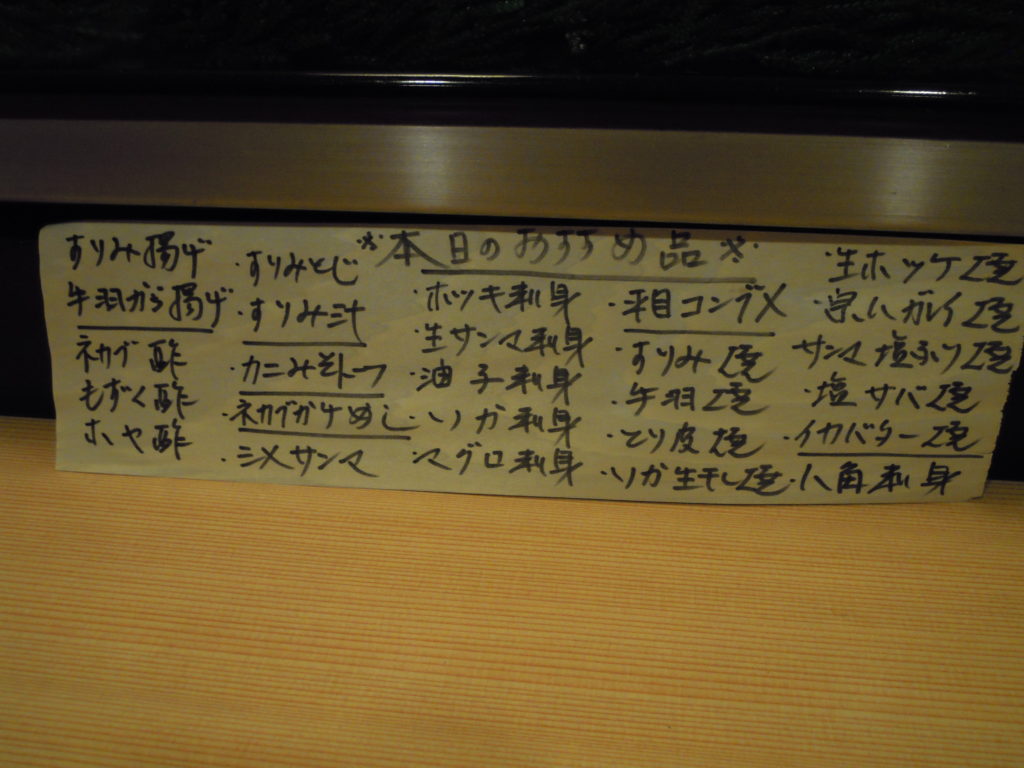 ※本日のおすすめ品※
すりみ揚げ
手羽から揚げ
ネカブ酢
もずく酢
ホヤ酢
・すりみとじ
・すりみ汁
・カニみそトーフ
・ネカブかけめし
・三メサンマ
・ホッキ刺身
・生サンマ刺身
・油子刺身
・イカ刺身
・マグロ刺身
・平目コンブメ
・すりみ焼
・手羽焼
・とり皮焼
・イカ生干し焼
・生ホッケ焼
・宗八ガレイ焼
サンマ塩ふり焼
・塩サバ焼
・イカバター焼
・八角刺身